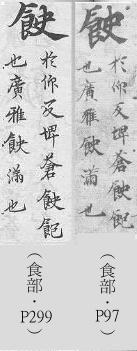 䬬
於仰反埤蒼䬬飽
也廣雅䬬滿也
（食部·P97）
䬬
於仰反埤蒼䬬飽
也廣雅䬬滿也
（食部·P299）